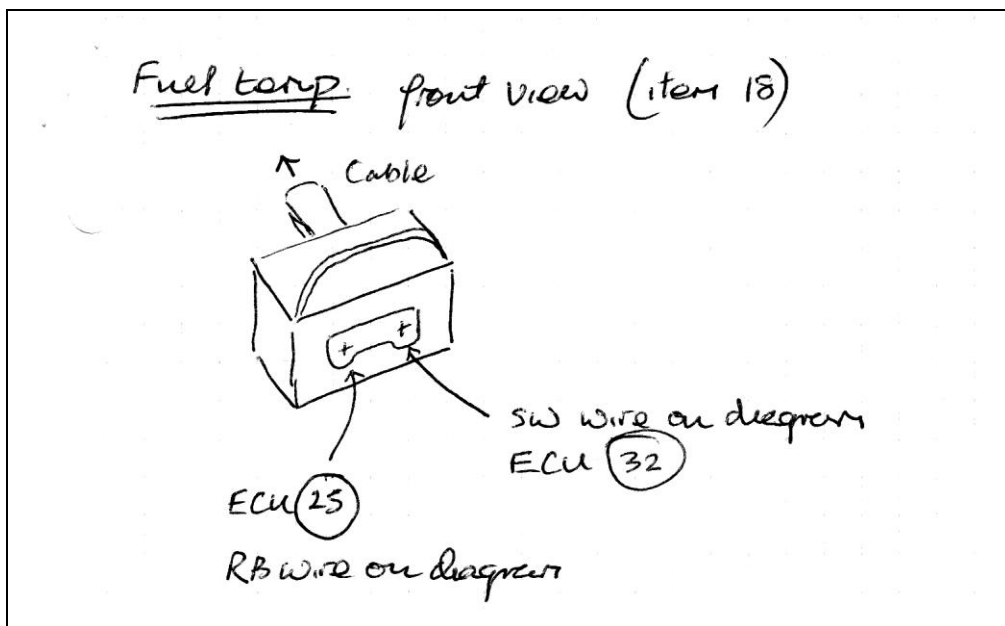 Fuel temp. front view (item 18)
Cable
SW wire on diagram
ECU 32
ECU 25
RB wire on diagram